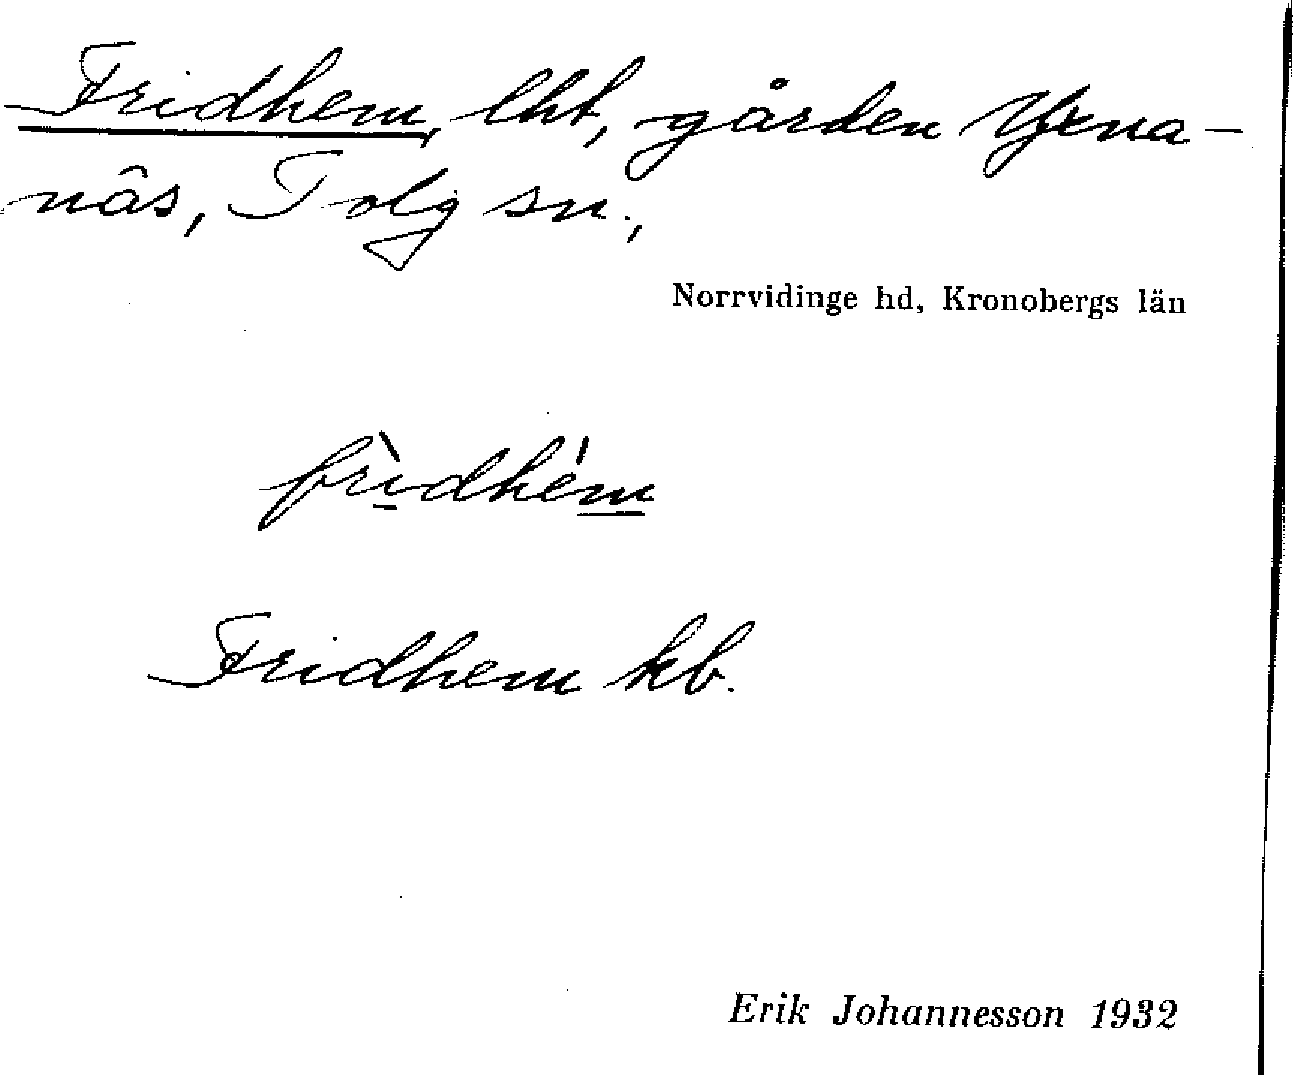 Fridhem, lht, gården Yxna-
näs, Tolg sn.,
Norrvidinge hd, Kronobergs län
frìdhém
Fridhem kb.
Erik Johannesson 1932